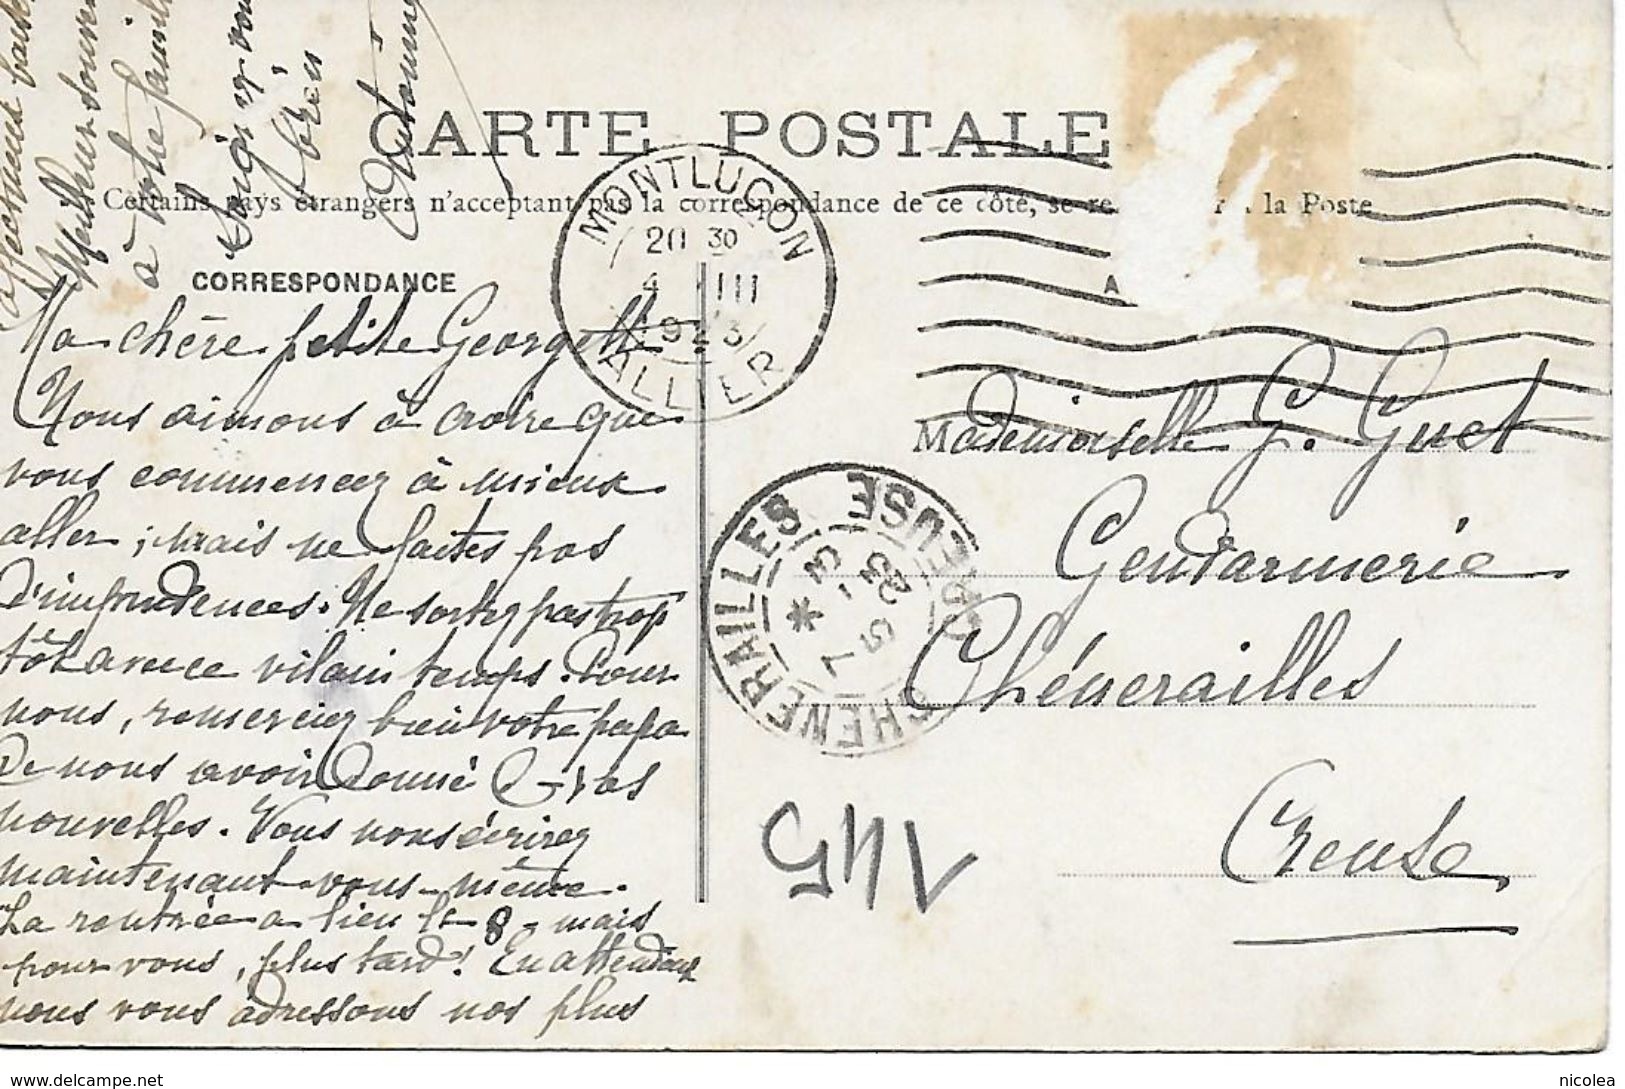 CARTE POSTALE
Certains pays étrangers n'acceptent pas la correspondance de ce côté, se re la Poste
CORRESPONDANCE
A
MONTLUÇON
20 30
4 III
1923
ALLIER
Ma chère petite Georgette
Nous aimons à croire que
vous commencez à mieux
aller ; mais ne faites pas
d'imprudences. Ne sortez pas trop
tôt avec ce vilain temps. Pour
nous, remerciez bien votre papa
de nous avoir donné de vos
nouvelles. Vous nous écrirez
maintenant vous-même.
La rentrée a lieu le 8 - mais
pour vous, plus tard ! En attendant
nous vous adressons nos plus
affectueux baisers
Meilleur souvenir
à votre famille
Soignez-vous
bien
Antonine
Mademoiselle G. Guet
Gendarmerie
Chénerailles
Creuse
CHENERAILLES CREUSE
7 5
3 23
145
delcampe.net
nicolea